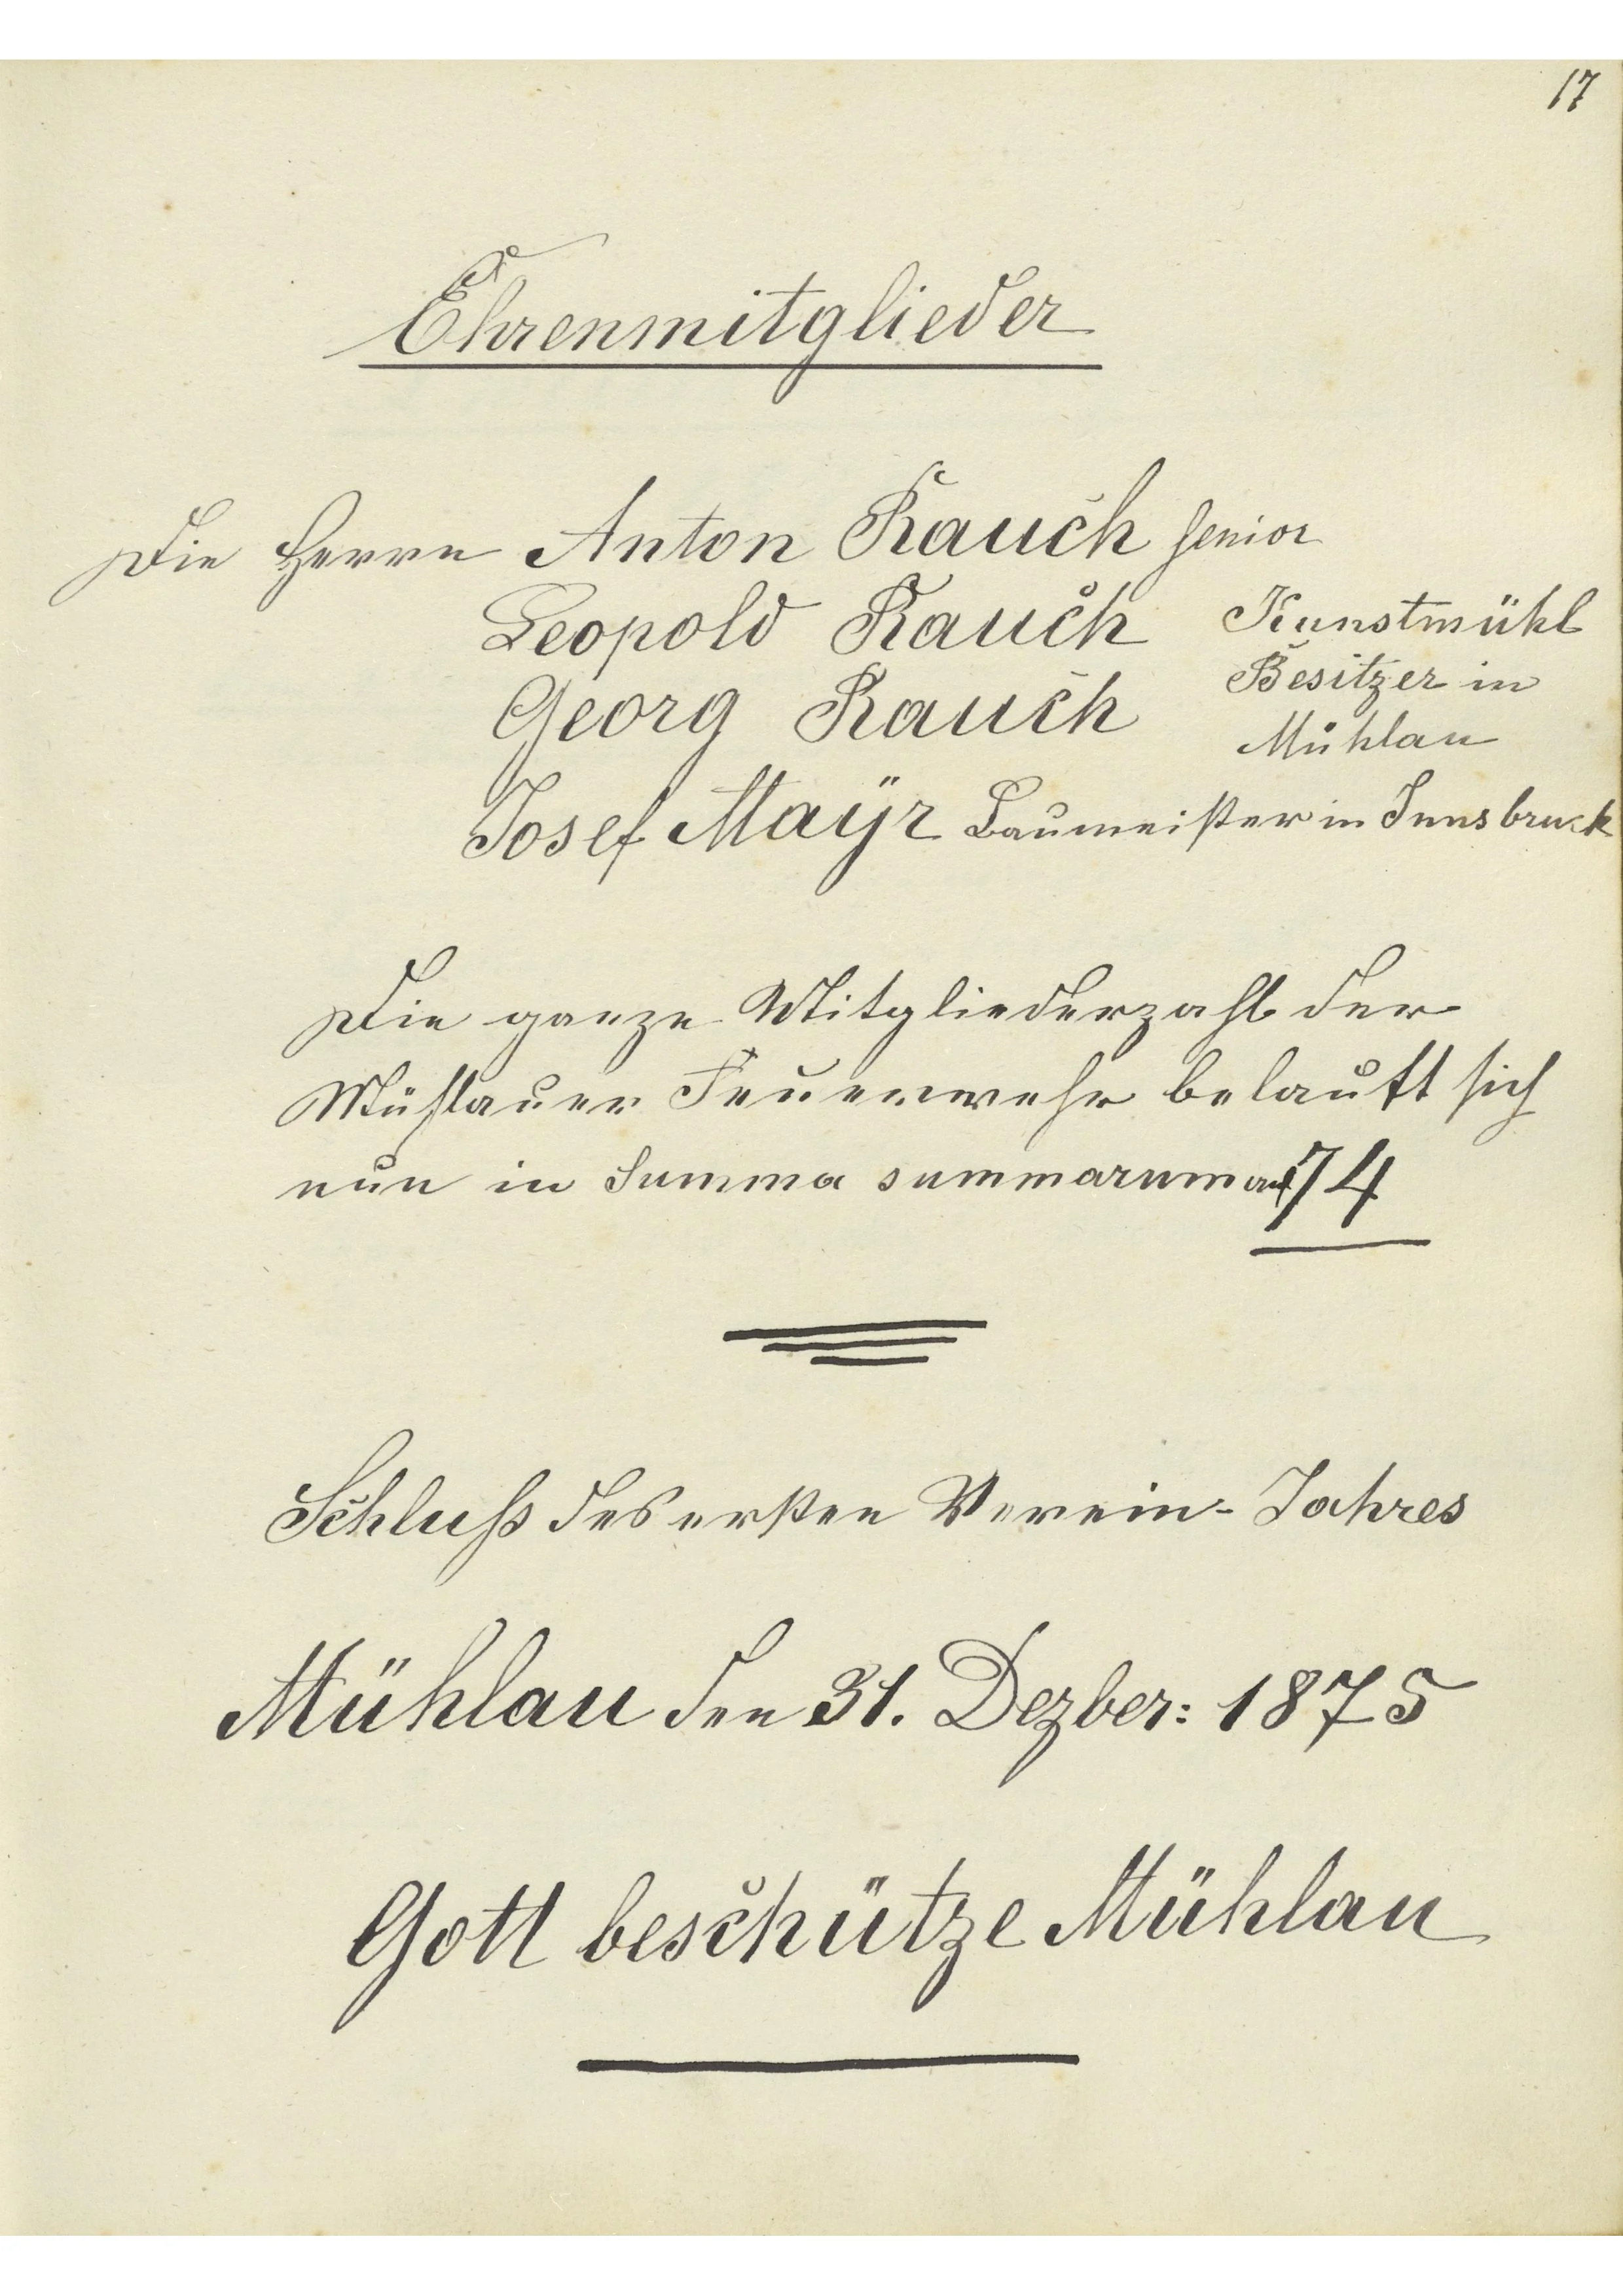 17
Ehrenmitglieder
Die Herrn Anton Rauch senior
Leopold Rauch Kunstmühl
Besitzer in
Georg Rauch
Mühlau
Josef Mayr Baumeister in Innsbruck
Die ganze Mitgliederzahl der
Mühlauer Feuerwehr belauft sich
nun in Summa summarum auf 74
Schluß des ersten Verein-Jahres
Mühlau den 31. Dezber: 1875
Gott beschütze Mühlau